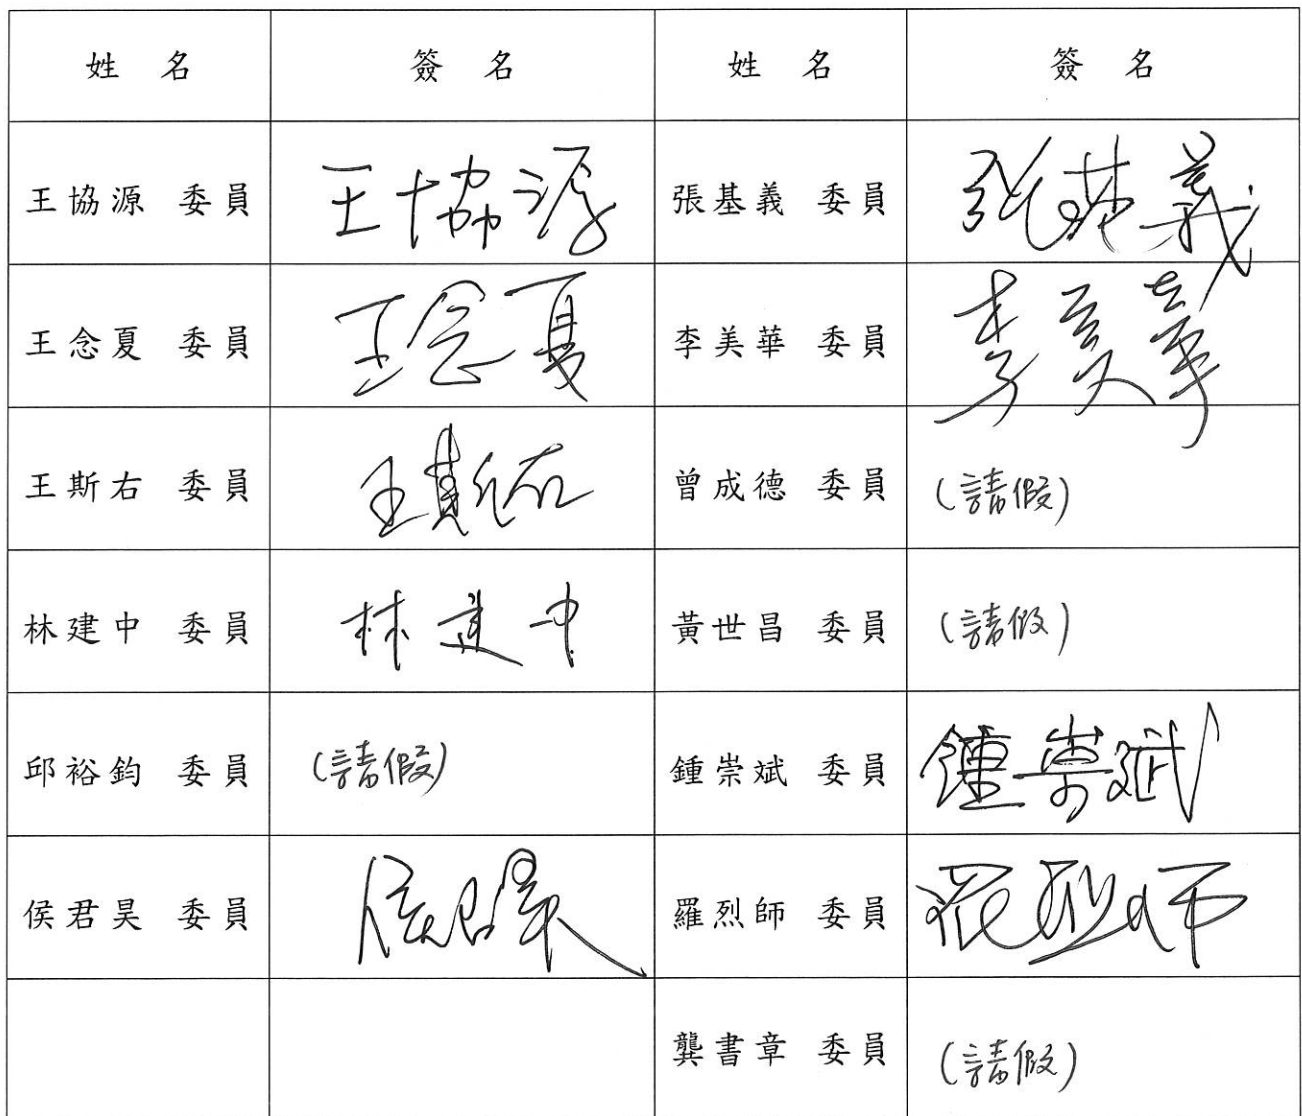 姓 名 簽 名 姓 名 簽 名
王協源 委員 王協源 張基義 委員 張基義
王念夏 委員 王念夏 李美華 委員 李美華
王斯右 委員 王斯右 曾成德 委員 (請假)
林建中 委員 林建中 黃世昌 委員 (請假)
邱裕鈞 委員 (請假) 鍾崇斌 委員 鍾崇斌
侯君昊 委員 侯君昊 羅烈師 委員 羅烈師
龔書章 委員 (請假)